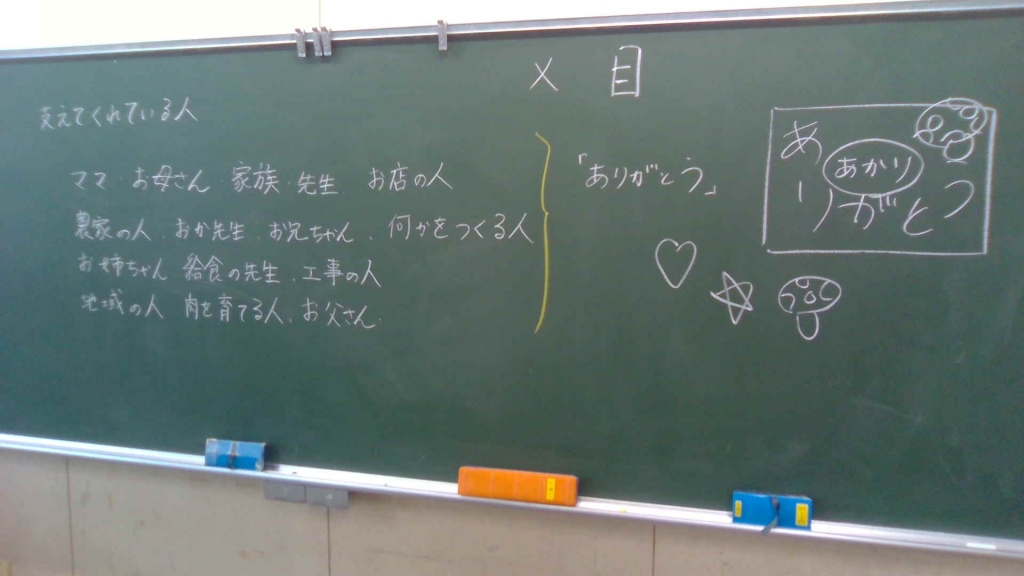 支えてくれている人
ママ・お母さん・家族・先生 お店の人
農家の人、おか先生、お兄ちゃん、何かをつくる人
お姉ちゃん 給食の先生、工事の人
地域の人 肉を育てる人、お父さん
メ 目
「ありがとう」
ありがとう
あかり